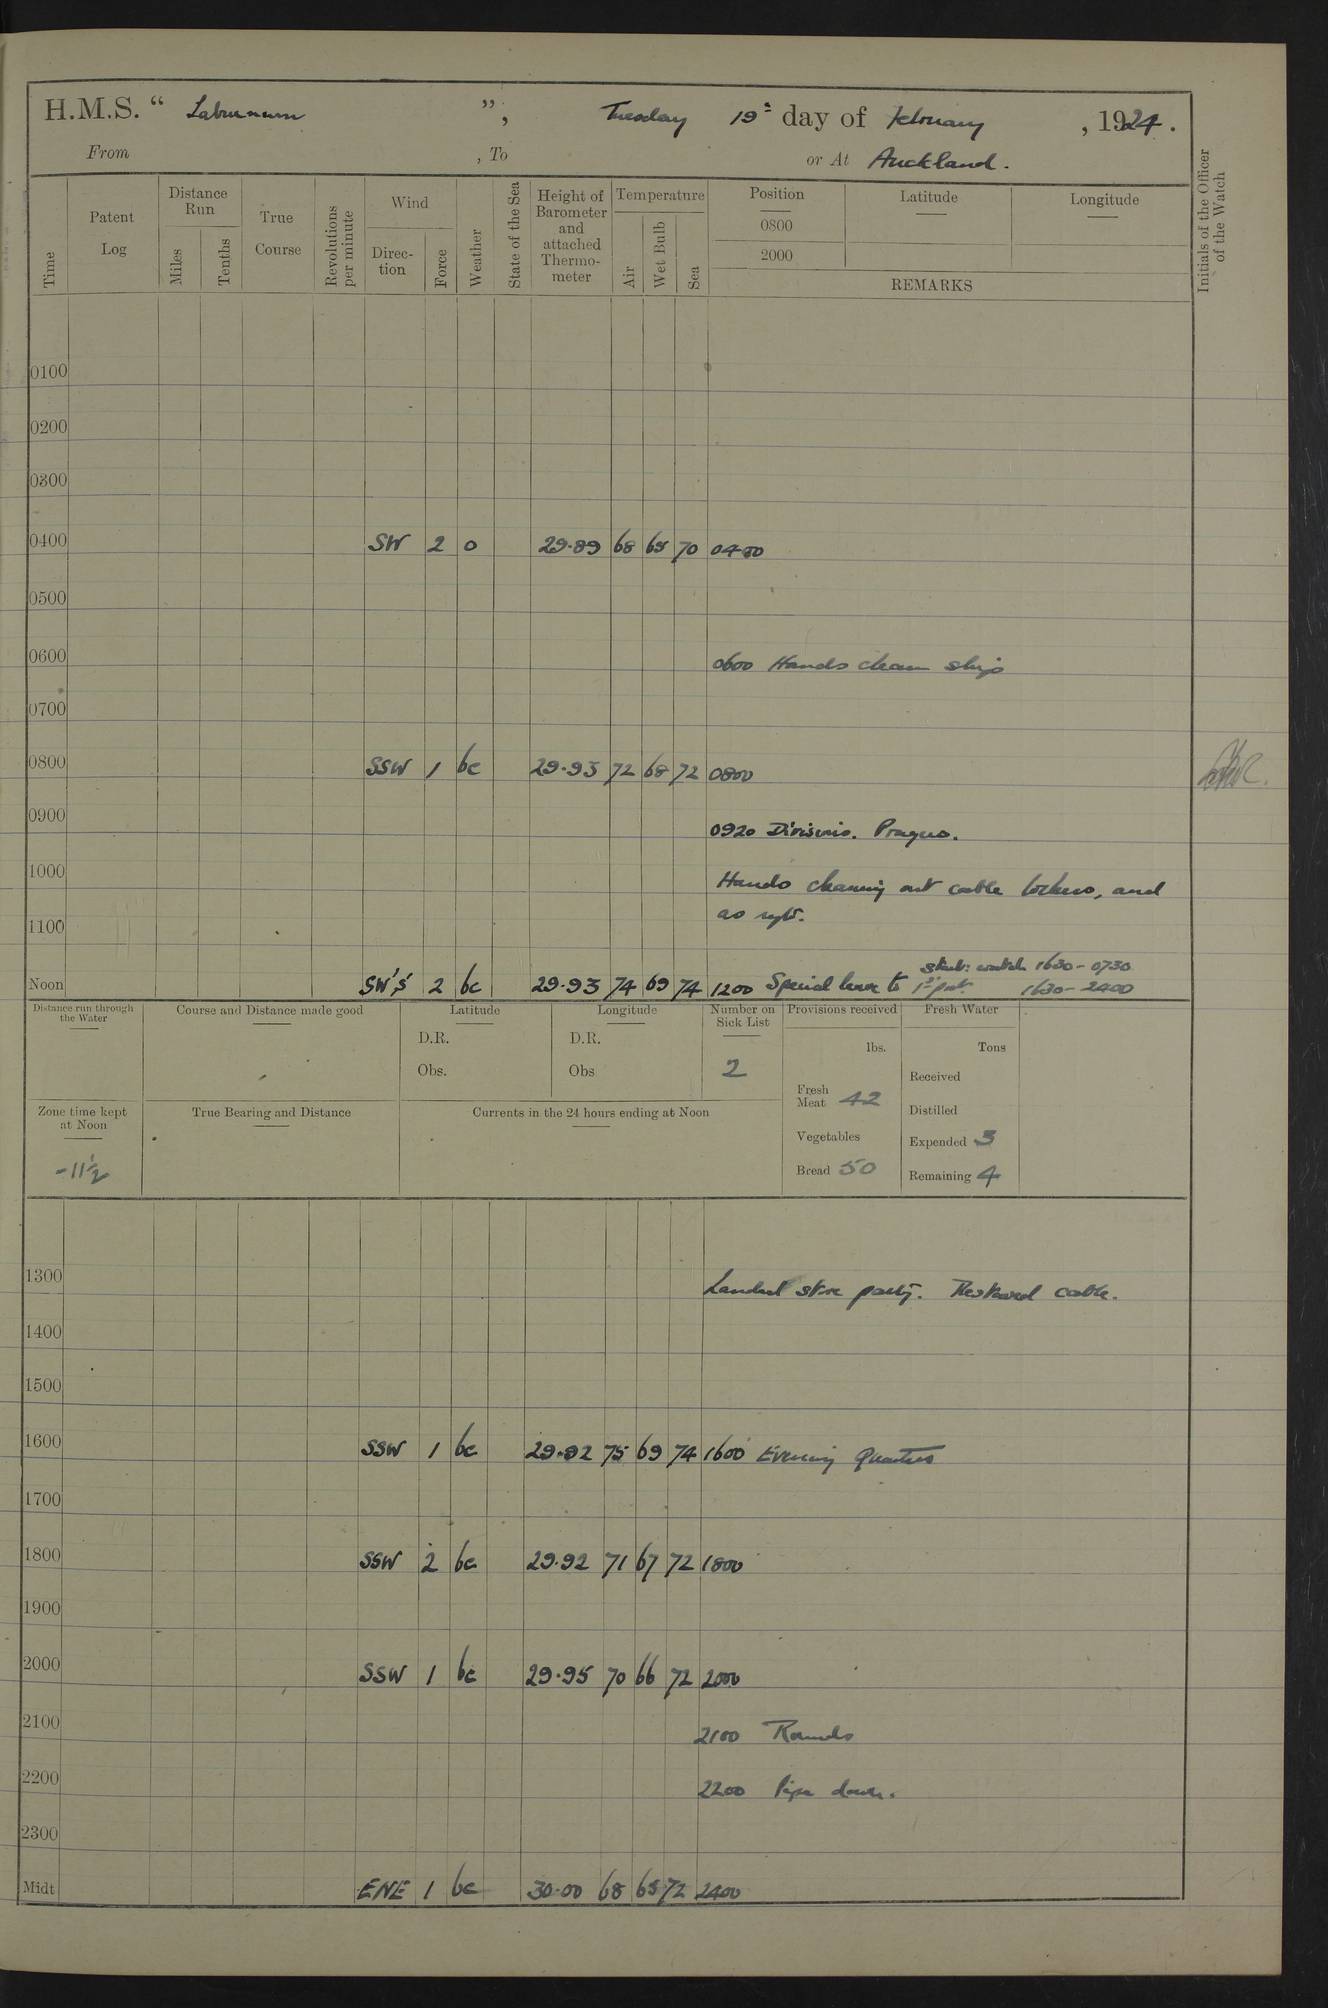 H.M.S. “ Laburnum ”, Tuesday 19th day of February , 1924.
From , To or At Auckland.
Time
Patent Log
Distance Run
Miles
Tenths
True Course
Revolutions per minute
Wind
Direction
Force
Weather
State of the Sea
Height of Barometer and attached Thermometer
Temperature
Air
Wet Bulb
Sea
Position
0800
2000
Latitude
Longitude
REMARKS
Initials of the Officer of the Watch
0100
0200
0300
0400 SW 2 o 29.89 68 65 70 0400
0500
0600 0600 Hands clean ship
0700
0800 SSW 1 bc 29.93 72 68 72 0800
0900 0920 Divisions. Prayers.
1000 Hands cleaning out cable lockers, and
as req.
1100
Noon SW'S 2 bc 29.93 74 69 74 1200 Special leave to Starb: watch 1630-0730
1st part 1630-2400
Distance run through the Water
Course and Distance made good
Latitude
D.R.
Obs.
Longitude
D.R.
Obs
Number on Sick List
2
Provisions received
lbs.
Fresh Meat 42
Vegetables
Bread 50
Fresh Water
Tons
Received
Distilled
Expended 3
Remaining 4
Zone time kept at Noon
-11½
True Bearing and Distance
Currents in the 24 hours ending at Noon
1300 Landed store party. Restowed cable.
1400
1500
1600 SSW 1 bc 29.92 75 69 74 1600 Evening Quarters
1700
1800 SSW 2 bc 29.92 71 67 72 1800
1900
2000 SSW 1 bc 29.95 70 66 72 2000
2100 2100 Rounds
2200 2200 Pipe down.
2300
Midt ENE 1 bc 30.00 68 65 72 2400